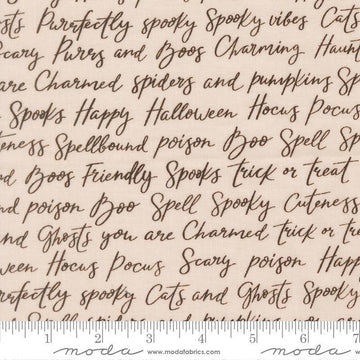 osts Purrfectly spooky Spooky vibes Cats
Scary Purrs and Boos Charming Haunt
are Charmed spiders and pumpkins Sp
Spooks Happy Halloween Hocus Pocus
teness Spellbound poison Boo Spell Sp
nd Boos Friendly Spooks trick or treat
nd poison Boo Spell Spooky Cuteness
and Ghosts you are Charmed trick or tre
ween Hocus Pocus Scary poison Happ
rrfectly spooky Cats and Ghosts Spooky
Spell spiders and pumpkins you are
1 2 3 4 5
moda www.modafabrics.com moda